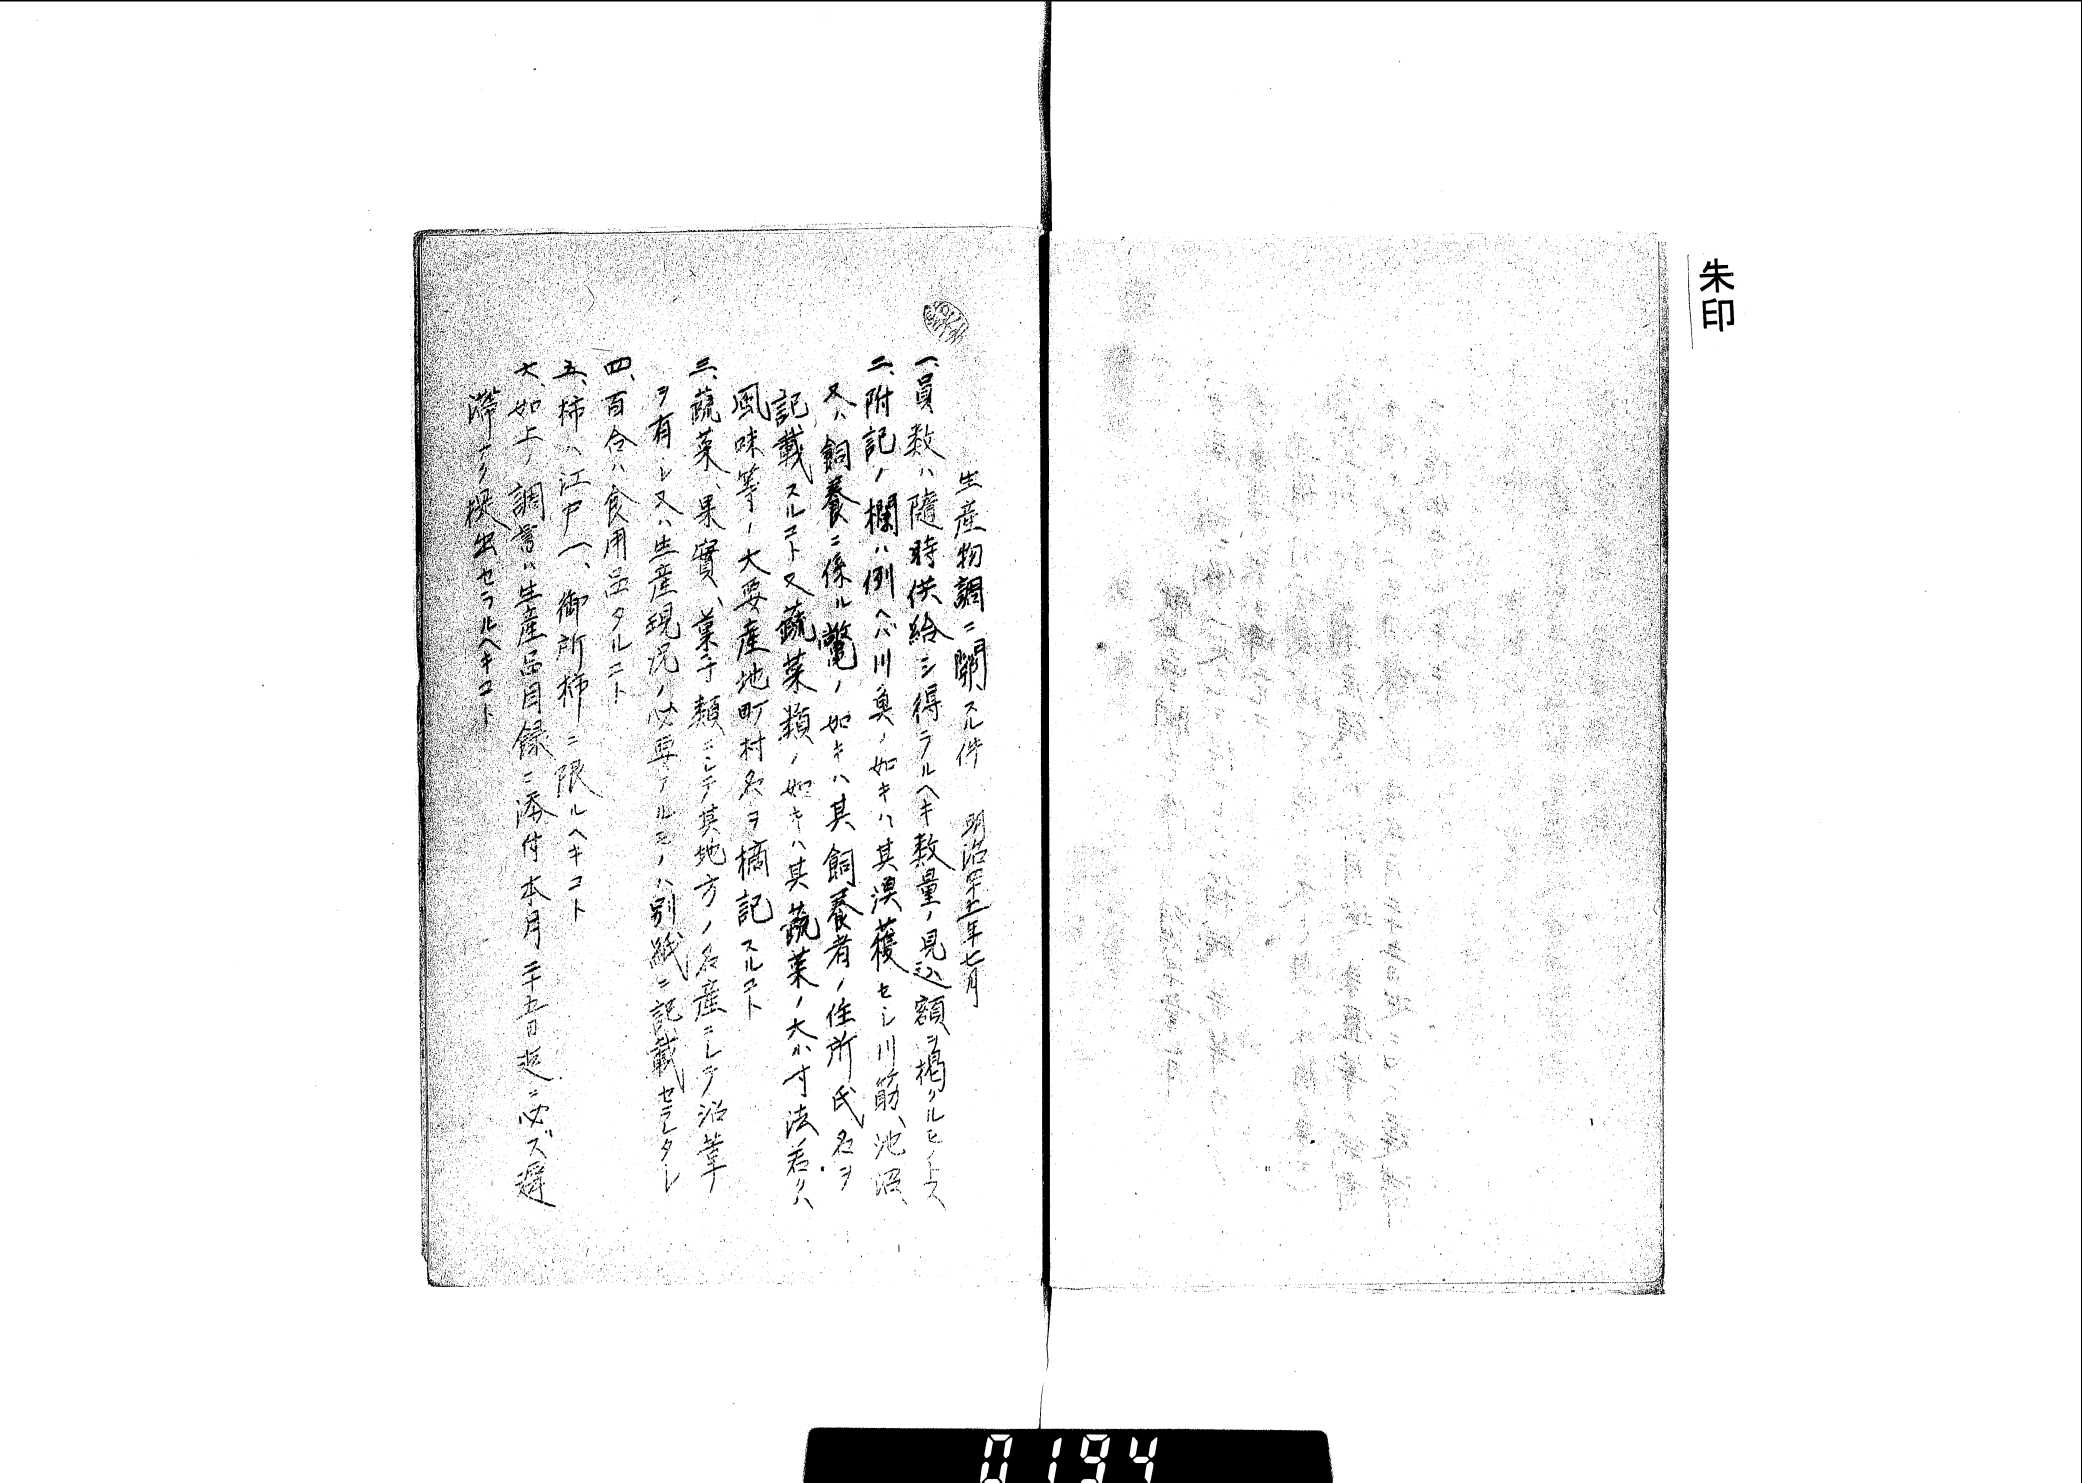 朱印
生産物調ニ関スル件 明治四十五年七月
一、員数ハ随時供給シ得ラルヘキ数量ノ見込額ヲ掲クルモノトス
二、附記ノ欄ハ例ヘバ川魚ノ如キハ其漁獲セシ川筋、池沼、
又ハ飼養ニ係ル鼈ノ如キハ其飼養者ノ住所氏名ヲ
記載スルコト又蔬菜類ノ如キハ其蔬菜ノ大小寸法若クハ
風味等ノ大要産地町村名ヲ摘記スルコト
三、蔬菜、果実、菓子類ニシテ其地方ノ名産ニシテ沿革
ヲ有シ又ハ生産現況ノ必要アルモノハ別紙ニ記載セラレタシ
四、百合ハ食用品タルコト
五、柿ハ江戸一、御所柿ニ限ルヘキコト
六、如上ノ調書ハ生産品目録ニ添付本月二十五日迄ニ必ズ遅
滞ナク提出セラルヘキコト
0194